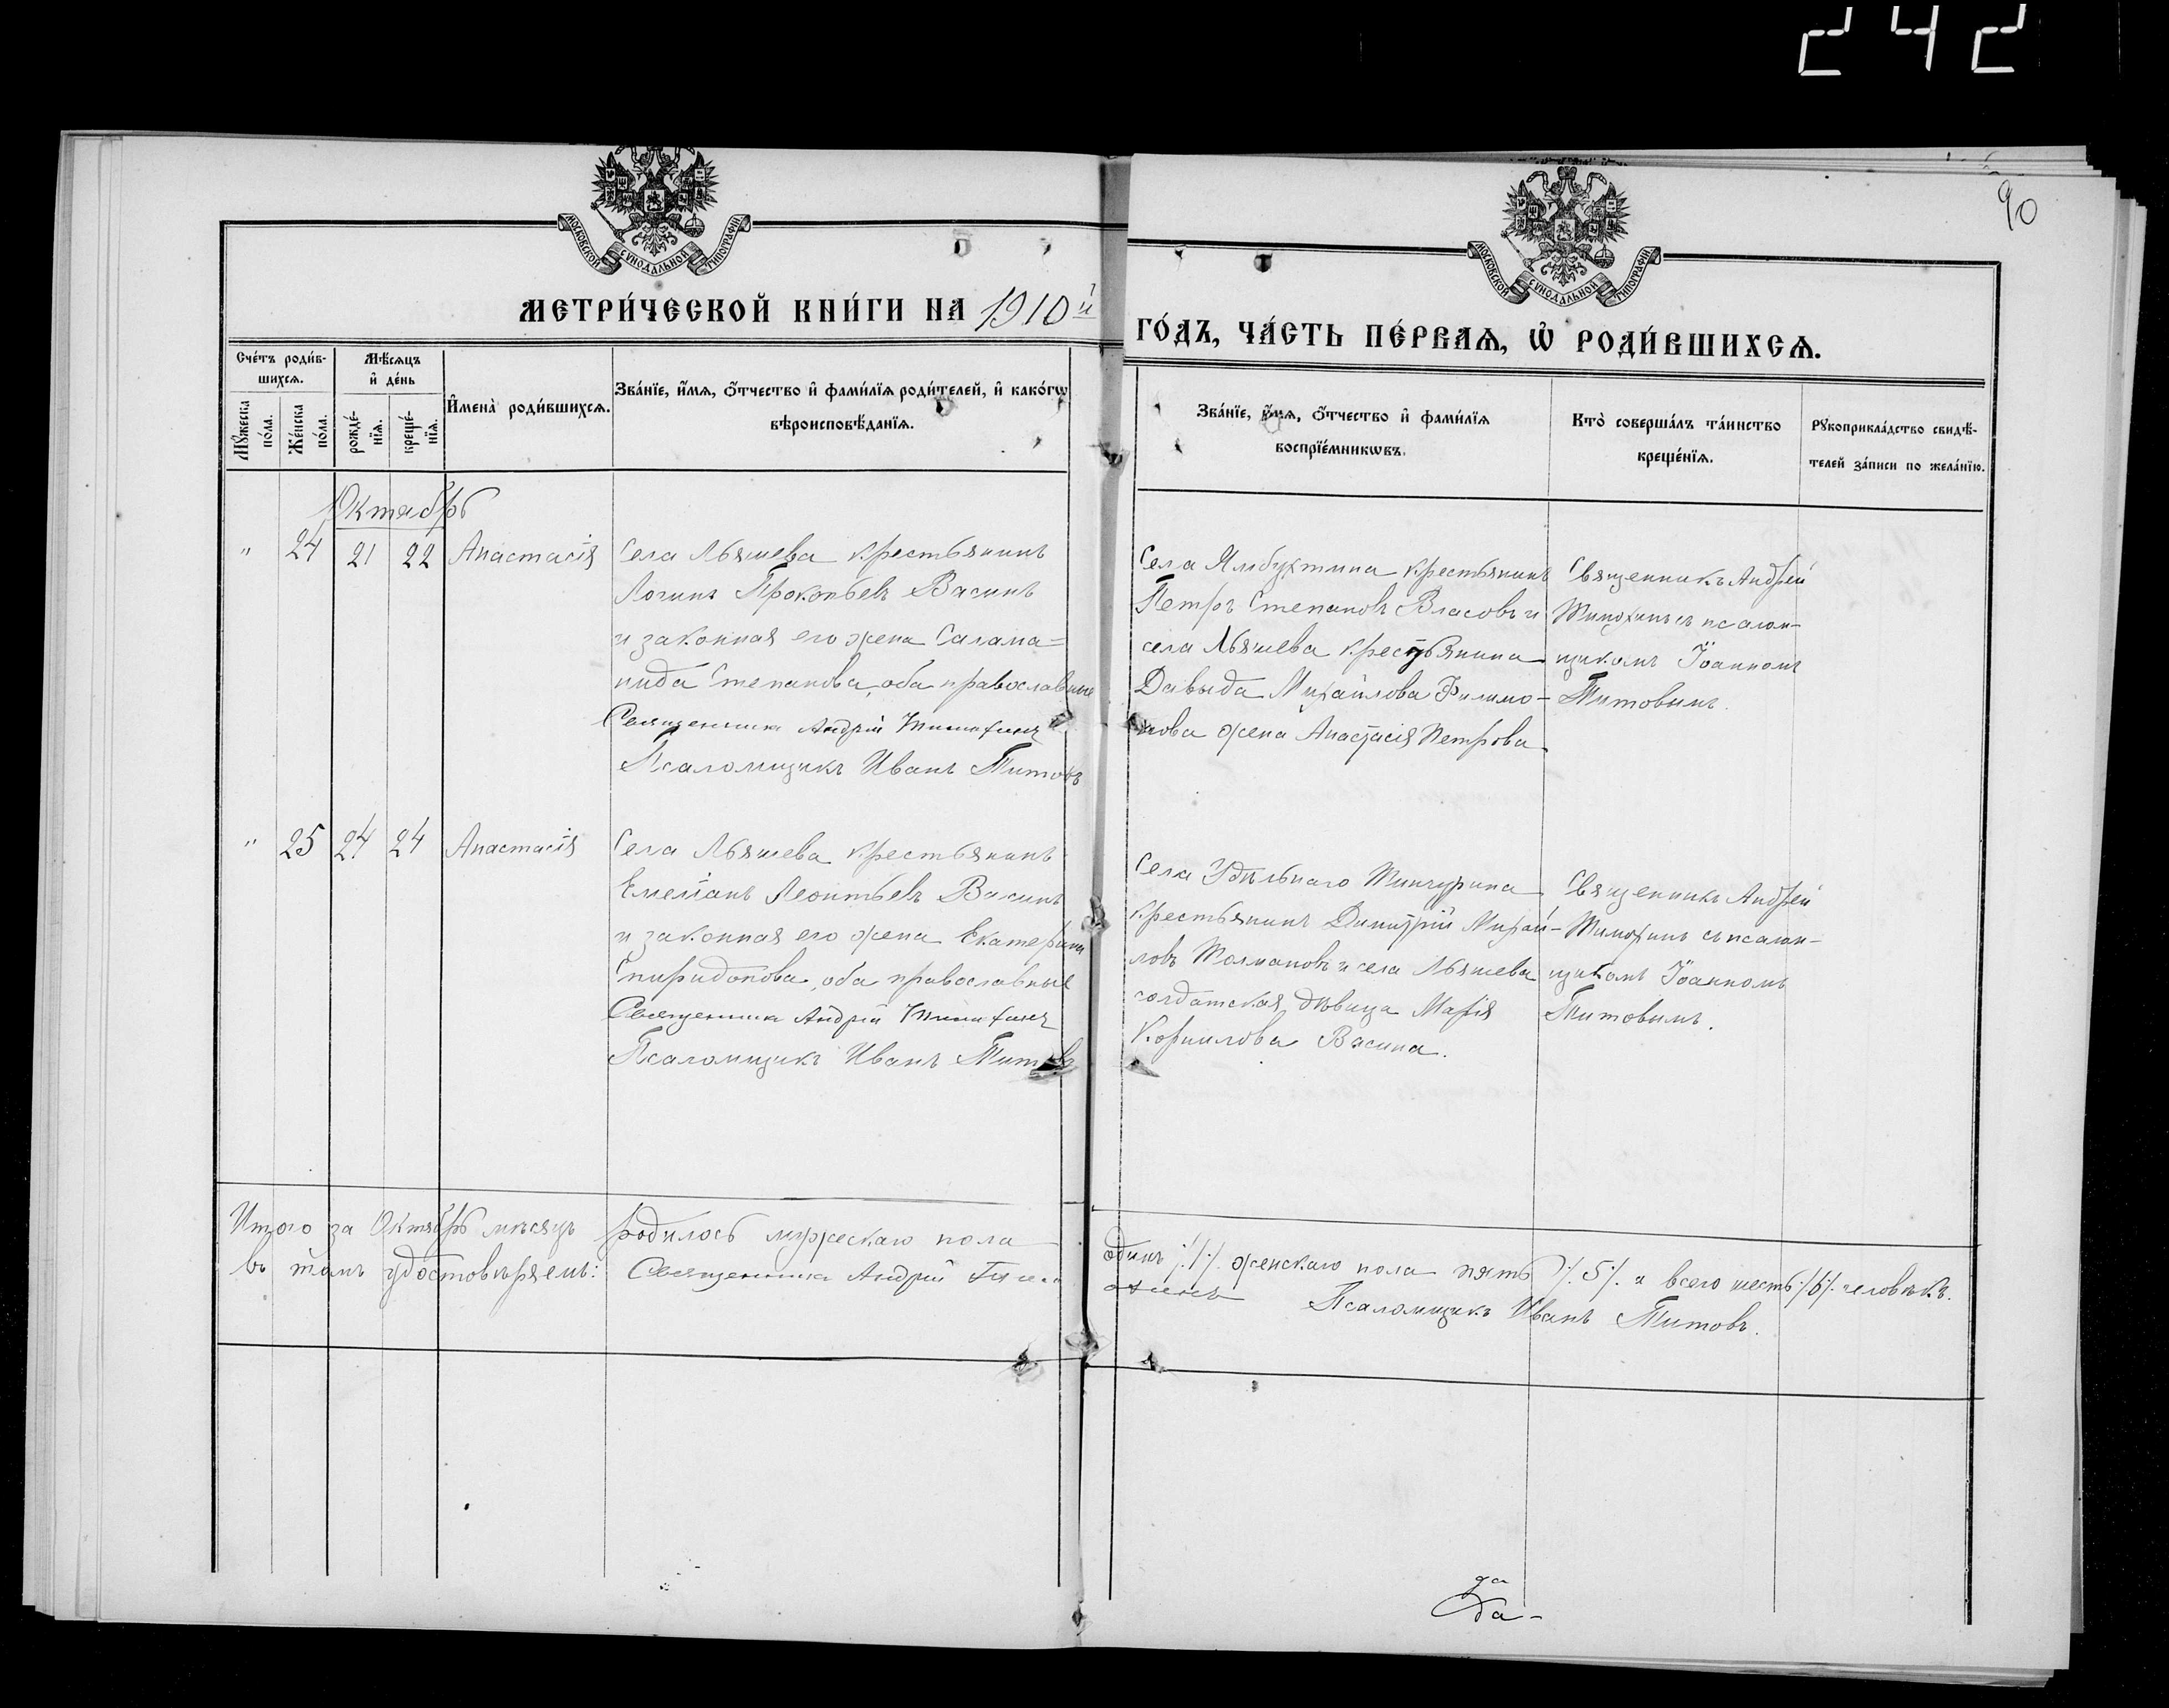 242
90
МОСКОВСКОЙ СѴНОДАЛЬНОЙ ТИПОГРАФІИ
МОСКОВСКОЙ СѴНОДАЛЬНОЙ ТИПОГРАФІИ
МЕТРИ́ЧЕСКОЙ КНИ́ГИ НА 1910й
ГО́ДЪ, ЧА́СТЬ ПЕ́РВАѦ, Ѡ҆ РОДИ́ВШИХСѦ.
Сче́тъ роди́в-
шихсѧ.
Мѣ́сѧцъ
и҆ де́нь
Мꙋ́жеска
по́ла.
Же́нска
по́ла.
рожде́-
нїѧ.
креще́-
нїѧ.
И҆мена̀ роди́вшихсѧ.
Зва́нїе, и҆́мѧ, ѻ҆́тчество и҆ фами́лїѧ роди́телей, и҆ како́гѡ
вѣроисповѣ́данїѧ.
Зва́нїе, и҆́мѧ, ѻ҆́тчество и҆ фами́лїѧ
воспрїе́мникѡвъ.
Кто̀ соверша́лъ та́инство
креще́нїѧ.
Рꙋкоприкла́дство свидѣ́-
телей за́писи по жела́нїю.
Октябрь
" 24 21 22 Анастасія
Села Льяшева крестьянинъ
Логинъ Прокопьевъ Васинъ
и законная его жена Салама=
нида Степанова, оба православные
Священникъ Андрей Тимофинъ
Псаломщикъ Иванъ Титовъ
Села Ямбухтина крестьянинъ
Петръ Степановъ Власовъ и
села Льяшева крестьянина
Давыда Михайлова Филимо-
нова жена Анастасія Петрова
Священникъ Андрей
Тимофинъ съ псалом-
щикомъ Іоанномъ
Титовымъ.
" 25 24 24 Анастасія
Села Льяшева крестьянинъ
Емеліанъ Леонтьевъ Васинъ
и законная его жена Екатерина
Спиридонова, оба православные
Священникъ Андрей Тимофинъ
Псаломщикъ Иванъ Титовъ
Села Удѣльнаго
крестьянинъ Димитрій Михай-
ловъ Толмановъ и села Льяшева
солдатская дѣвица Марія
Корнилова Васина.
Священникъ Андрей
Тимофинъ съ псалом-
щикомъ Іоанномъ
Титовымъ.
Итого за Октябрь мѣсяцъ родилось мужескаго пола
одинъ ./.1./. женскаго пола пять ./.5./. а всего шесть ./.6./. человѣкъ.
въ томъ удостовѣряемъ: Священникъ Андрей
Псаломщикъ Иванъ Титовъ.